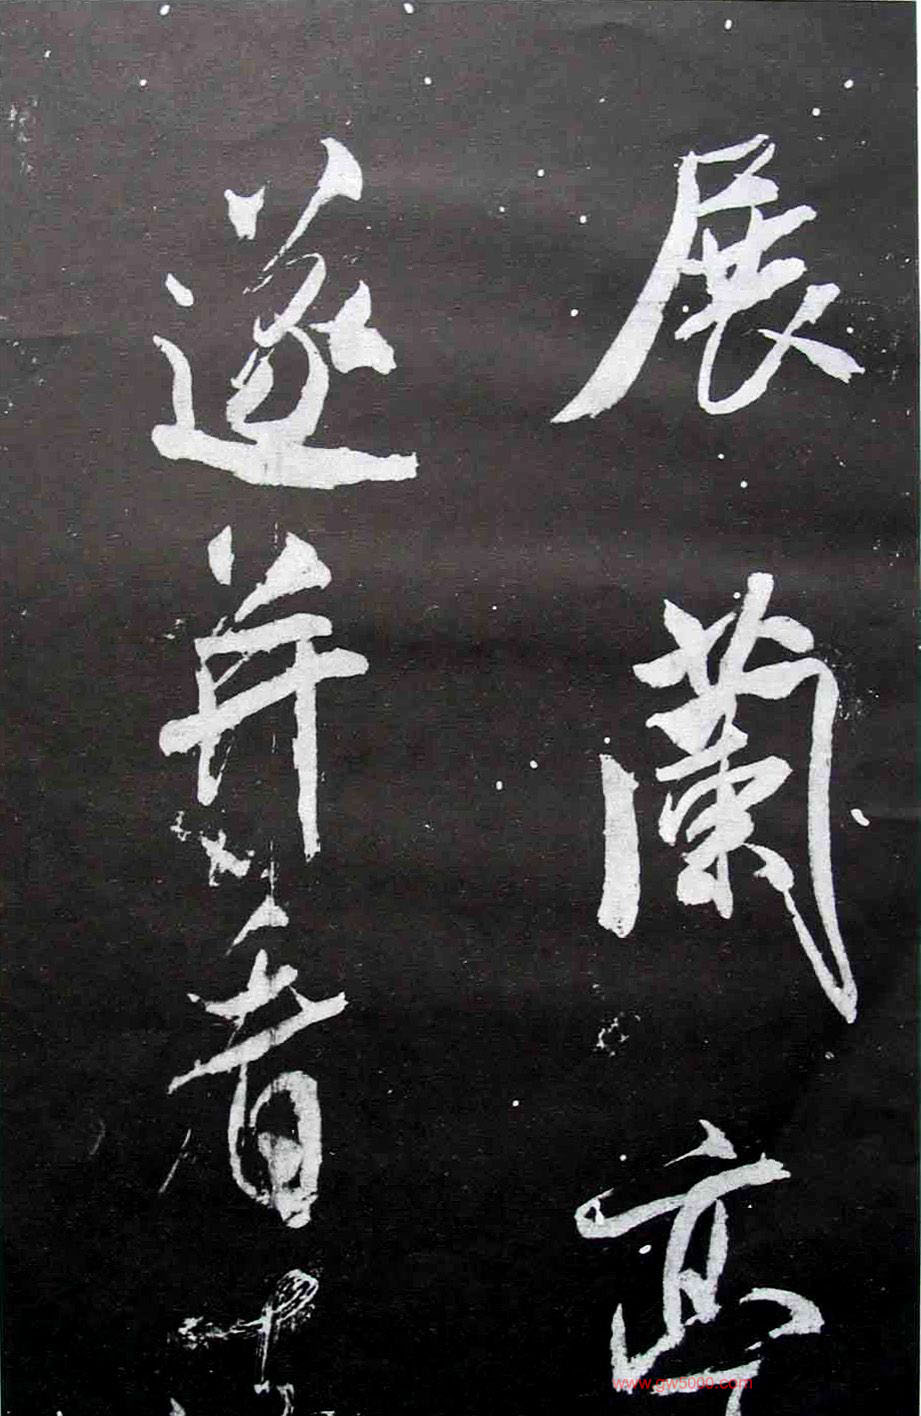 展蘭亭
遂并香
www.gw5000.com